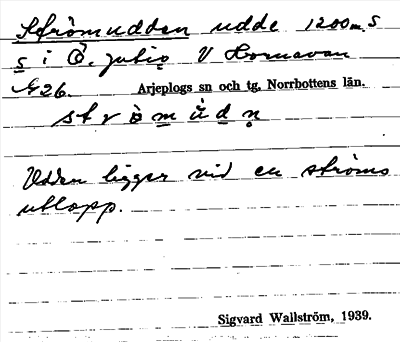 Strömudden udde 1200 m S
s i Ö. Jutis V Hornavan
26. Arjeplogs sn och tg, Norrbottens län.
strömùdn̥
Udden ligger vid en ströms
utlopp.
Sigvard Wallström, 1939.